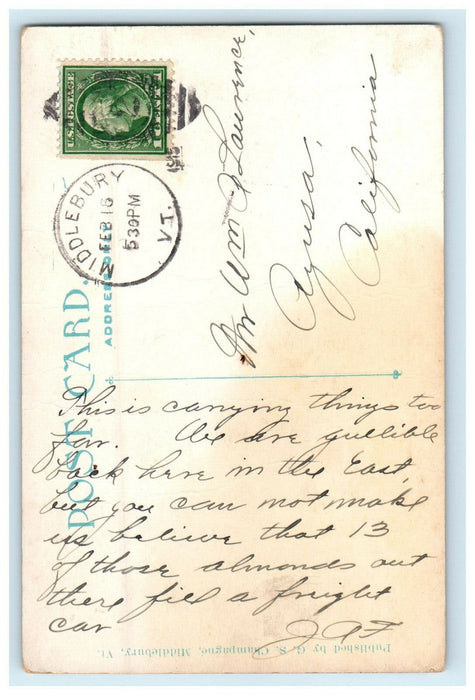 U.S. POSTAGE
1 CENT 1
MIDDLEBURY
FEB 16
530PM
VT.
POST CARD.
ADDRESS ONLY
Mr Wm Lawrence,
Azusa,
California
This is carrying things too
far. We are gullible
back here in the East,
but you can not make
us believe that 13
of those almonds out
there fill a freight
car
J A F
Published by G. S. Champagne, Middlebury, Vt.